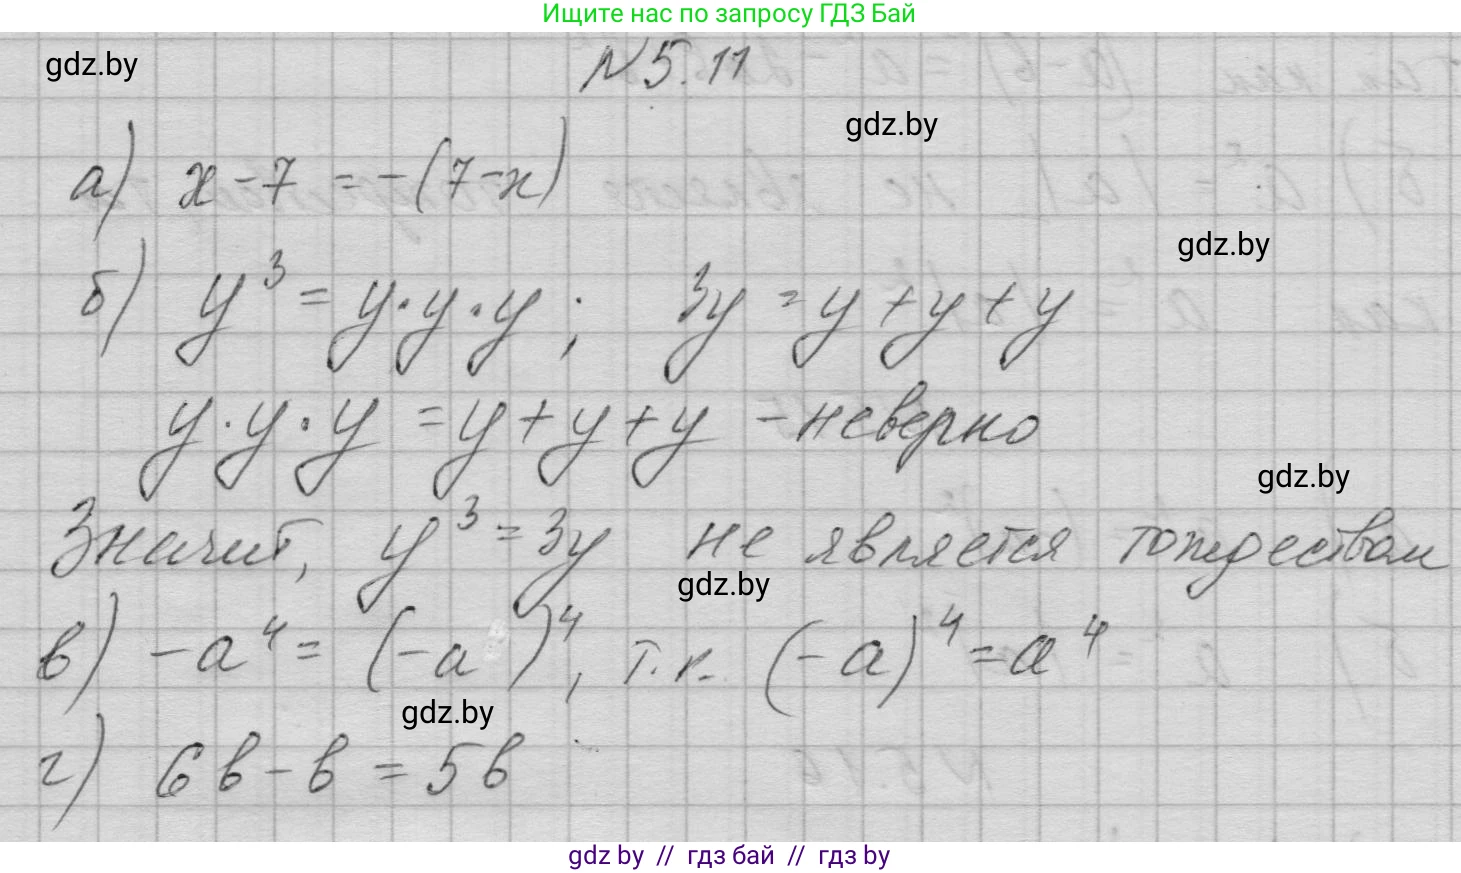 Ищите нас по запросу ГДЗ Бай
gdz.by
N 5.11
gdz.by
а) x-7 = -(7-x)
gdz.by
б) y³ = y·y·y ; 3y = y+y+y
y·y·y = y+y+y - неверно
gdz.by
Значит, y³ = 3y не является тождеством
gdz.by
в) -a⁴ = (-a)⁴, т.к. (-a)⁴ = a⁴
gdz.by
г) 6в-в = 5в
gdz by // гдз бай // гдз by